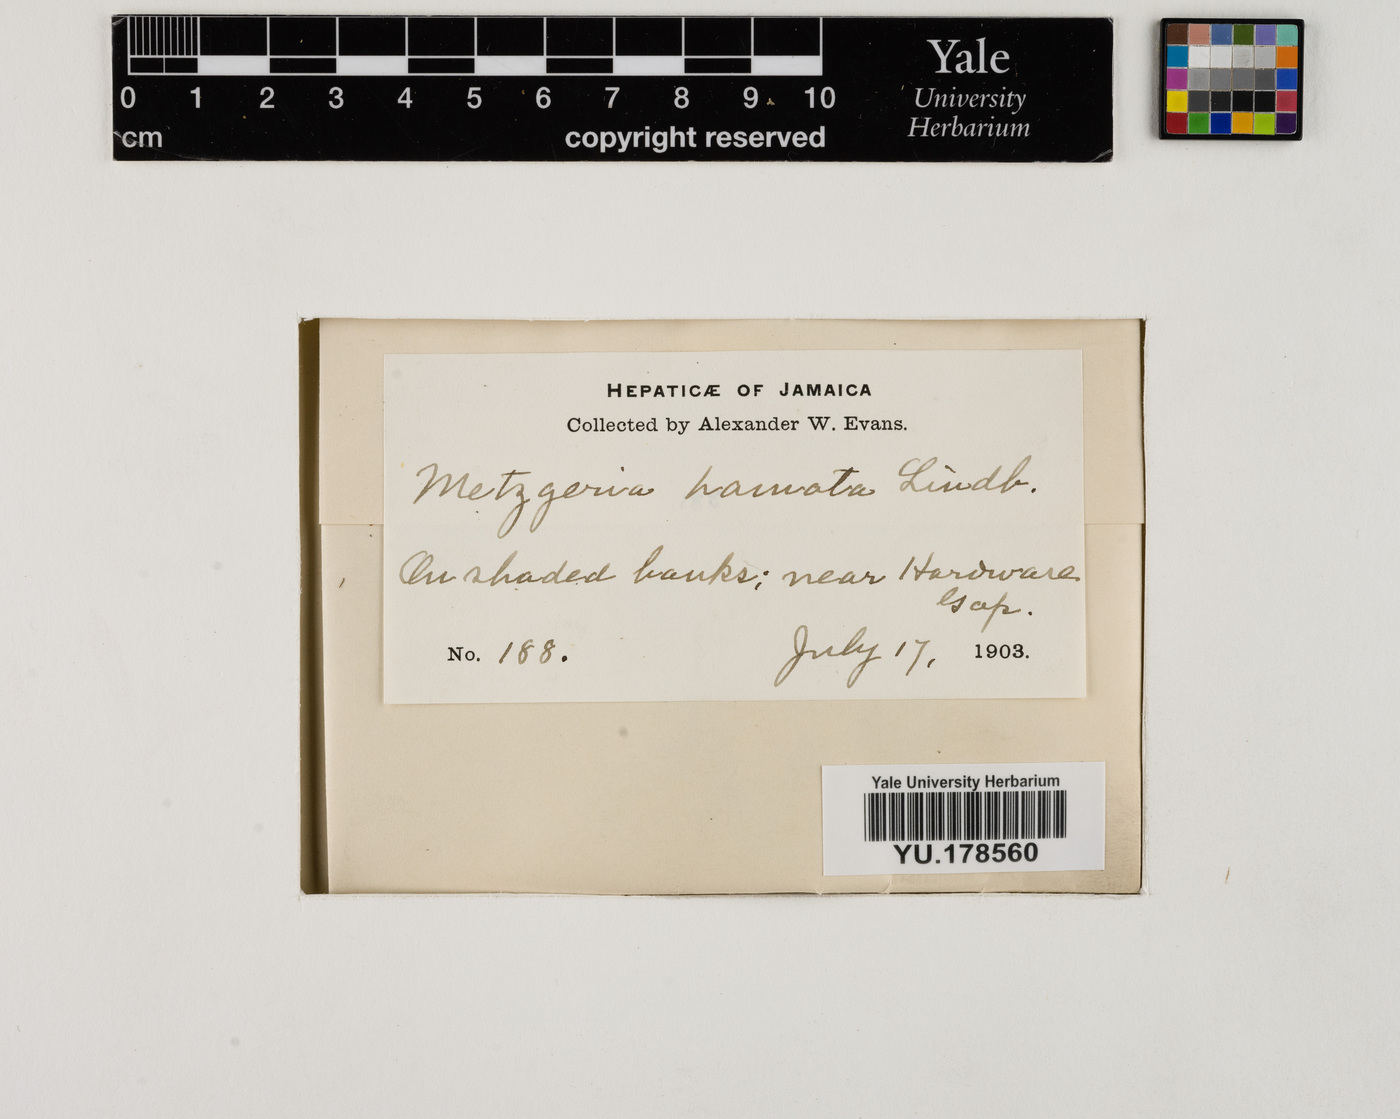 0 1 2 3 4 5 6 7 8 9 10
cm
copyright reserved
Yale
University
Herbarium
HEPATICÆ OF JAMAICA
Collected by Alexander W. Evans.
Metzgeria hamata Lindb.
On shaded banks; near Hardware
Gap.
No. 188. July 17, 1903.
Yale University Herbarium
YU.178560